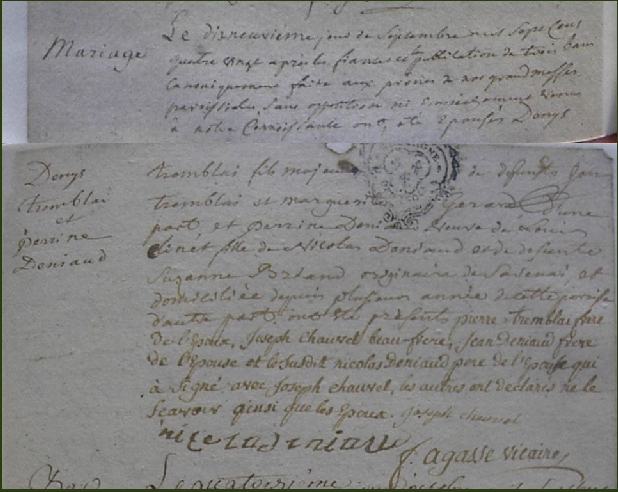 Mariage
Le dixneuvieme jour de Septembre mil Sept Cens
quatre vingt après les fiances et publication de trois bans
Canoniquement faite aux prônes de nos grandmesses
paroissiales Sans opposition ni Empechement venus
à notre Connoissance ont été Epousés Denys
Denys
tremblai
et
perrine
Deniaud
tremblai fils majeur de defunts Jan
tremblai et marguerite Gerard D'une
part et perrine Deniaud veuve de Louis
fille de Nicolas Deniaud et de defunte
Suzanne originaire de et
domiciliée depuis plusieurs année de cette paroisse
d'autre part. ont été présents pierre tremblai frere
de l'Epoux, Joseph chauvel beau-frere, Jean Deniaud frere
de l'Epouse et le Susdit nicolas Deniaud pere de l'Epouse qui
à Signé avec Joseph chauvel, les autres ont declarés ne le
Scavoir ainsi que les Epoux. Joseph chauvel
nicola deniau
f. agasse vicaire
Le quatorzième